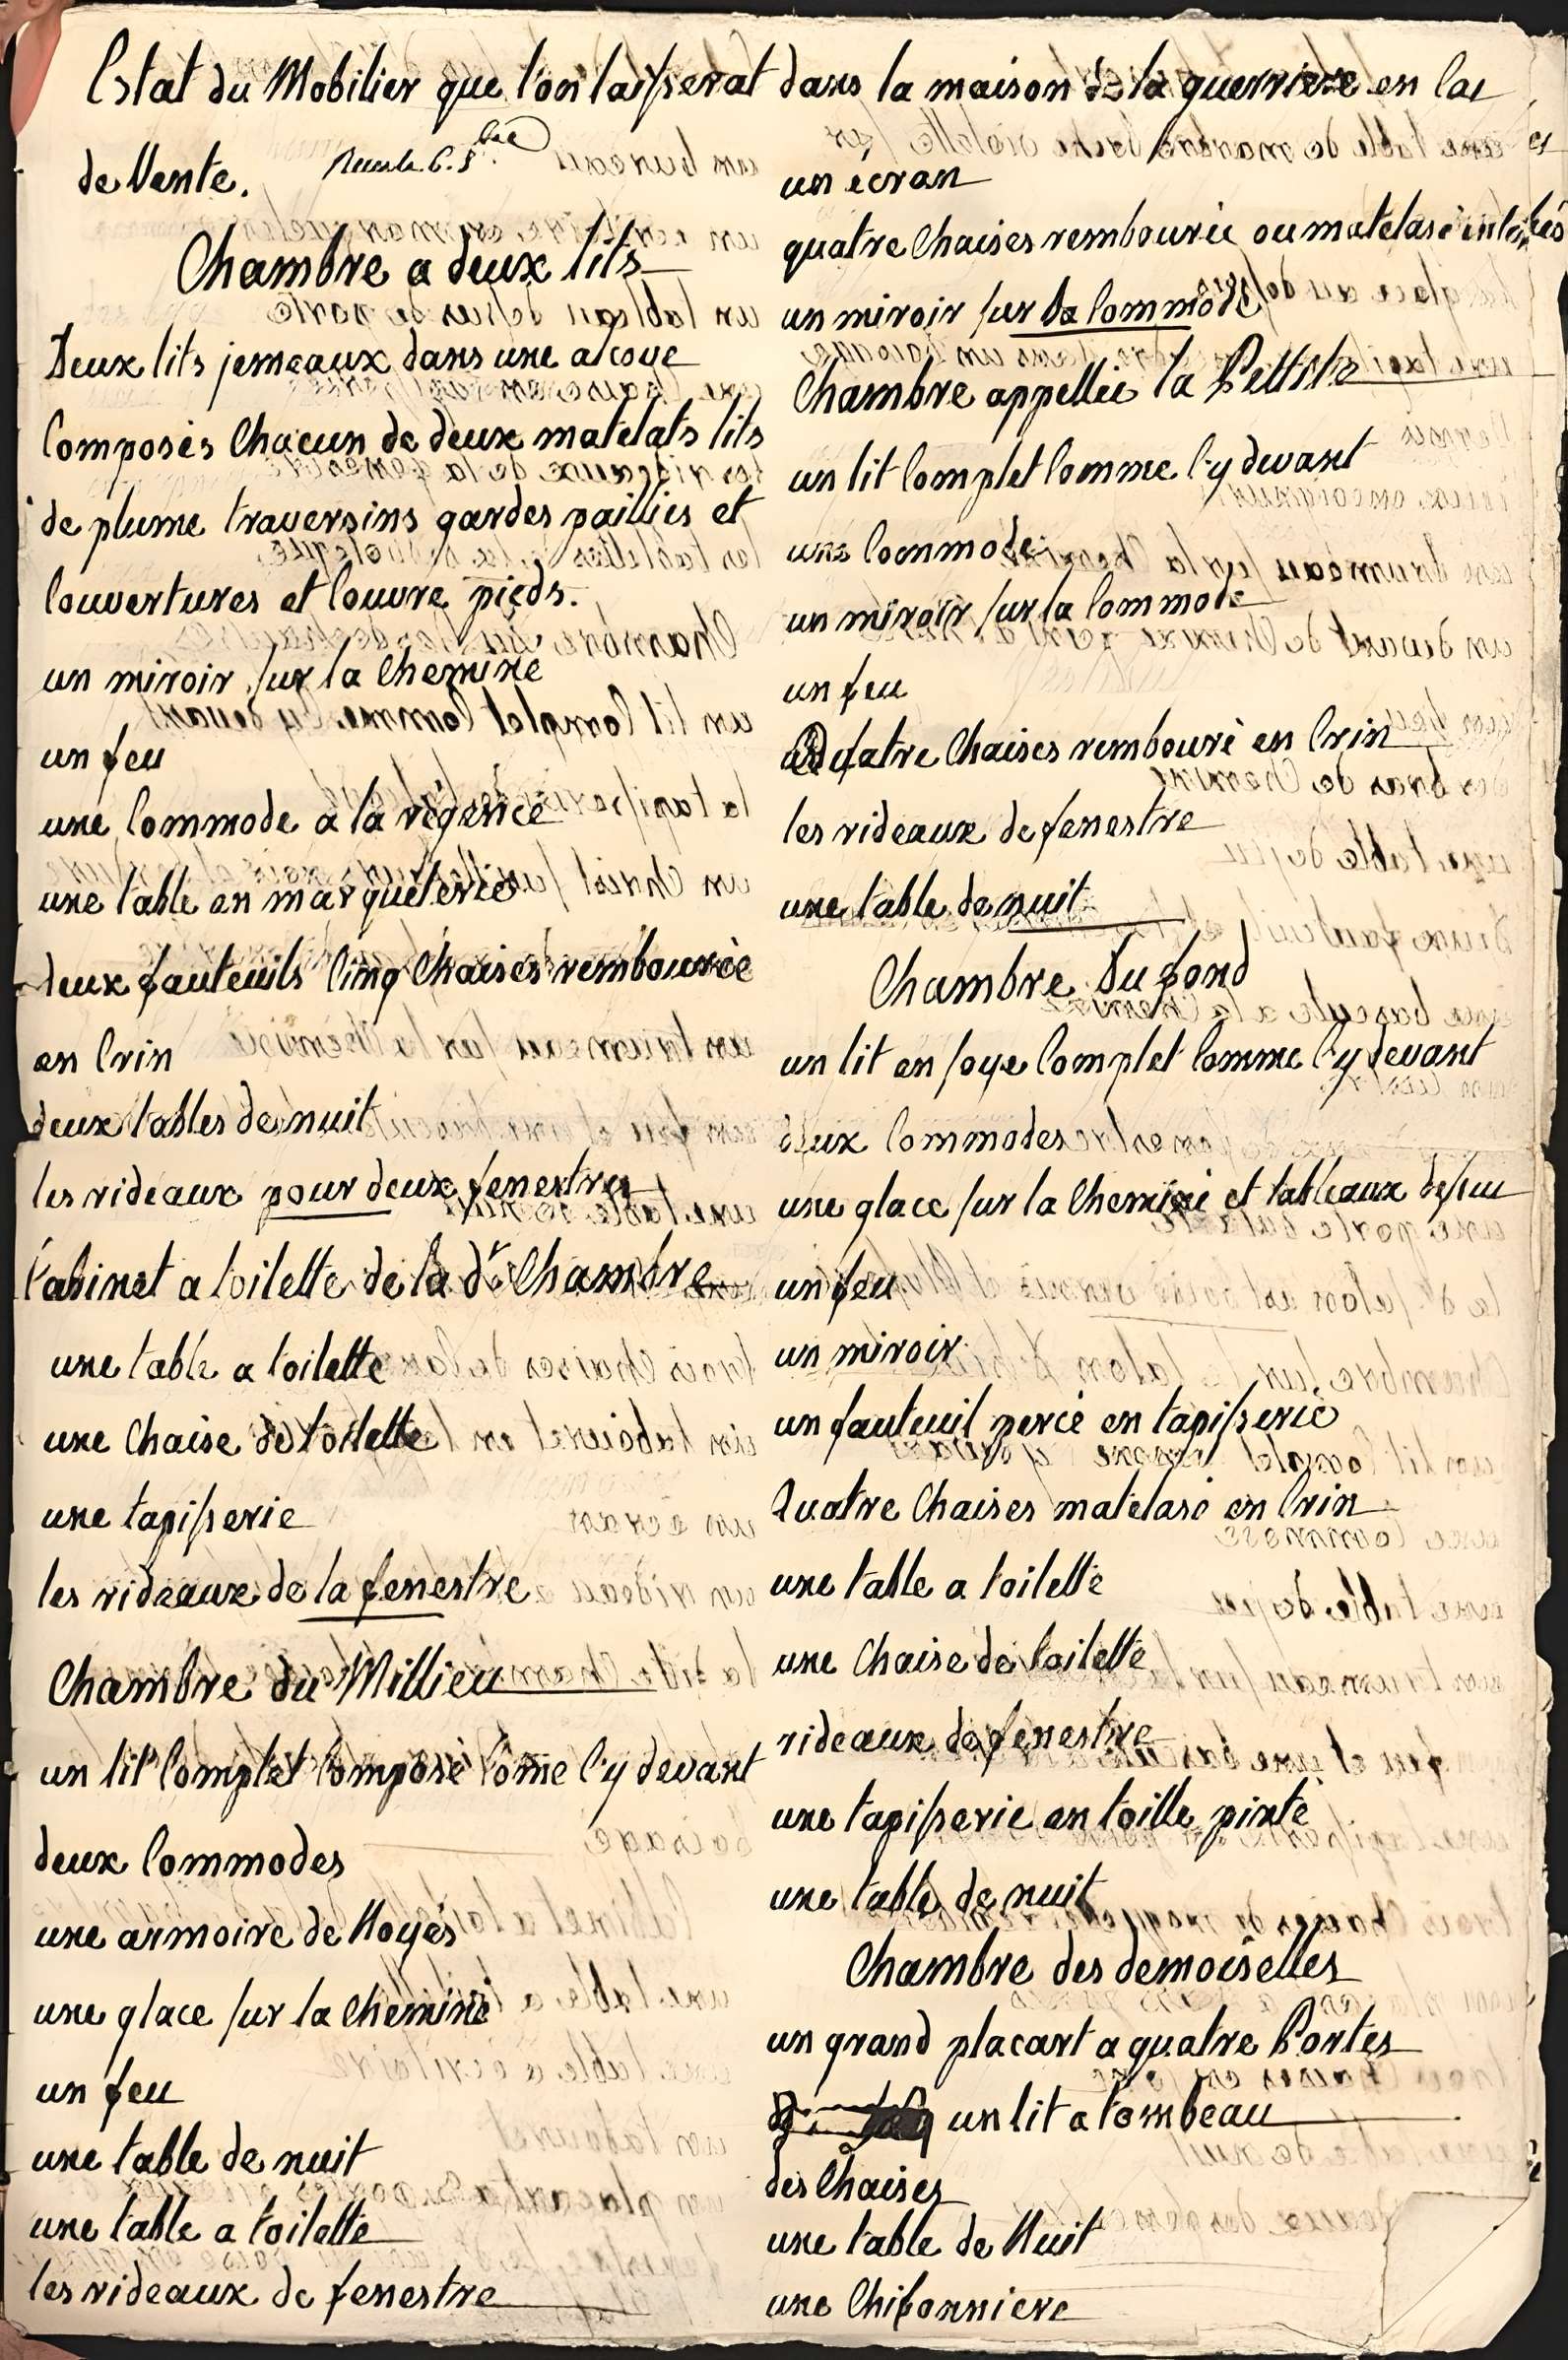 Estat du Mobilier que l'on laisserat dans la maison de la guerriere en cas
de Vente.
Chambre a deux lits
Deux lits jemeaux dans une alcove
Composés Chacun de deux matelats lits
de plume traversins gardes paillies et
Couvertures et Couvre pieds.
un miroir sur la Cheminé
un feu
une Commode a la régence
une table en marqueterie
deux fauteuils Cinq Chaises rembourée
en Crin
deux tables de nuit
les rideaux pour deux fenestres
Cabinet a toilette de la de Chambre
une table a toilette
une Chaise de toilette
une tapisserie
les rideaux de la fenestre
Chambre du Millieu
un lit Complet Composé Come Cy devant
deux Commodes
une armoire de Noyés
une glace sur la Cheminé
un feu
une table de nuit
une table a toilette
les rideaux de fenestre
un écran
quatre Chaises rembourée ou matelasé
un miroir sur la Commode
Chambre appellée la
un lit Complet Comme Cy devant
une Commode
un miroir sur la Commode
un feu
quatre Chaises rembouré en Crin
les rideaux de fenestre
une table de nuit
Chambre Du fond
un lit en soye Complet Comme Cy devant
deux Commodes
une glace sur la Cheminé et tableaux dessu
un feu
un miroir
un fauteuil percé en tapisserie
Quatre Chaises matelasé en Crin
une table a toilette
une Chaise de toilette
rideaux de fenestre
une tapisserie en toille pinte
une table de nuit
Chambre des demoiselles
un grand placart a quatre Portes
un lit a tombeau
des Chaises
une table de Nuit
une Chifonniere